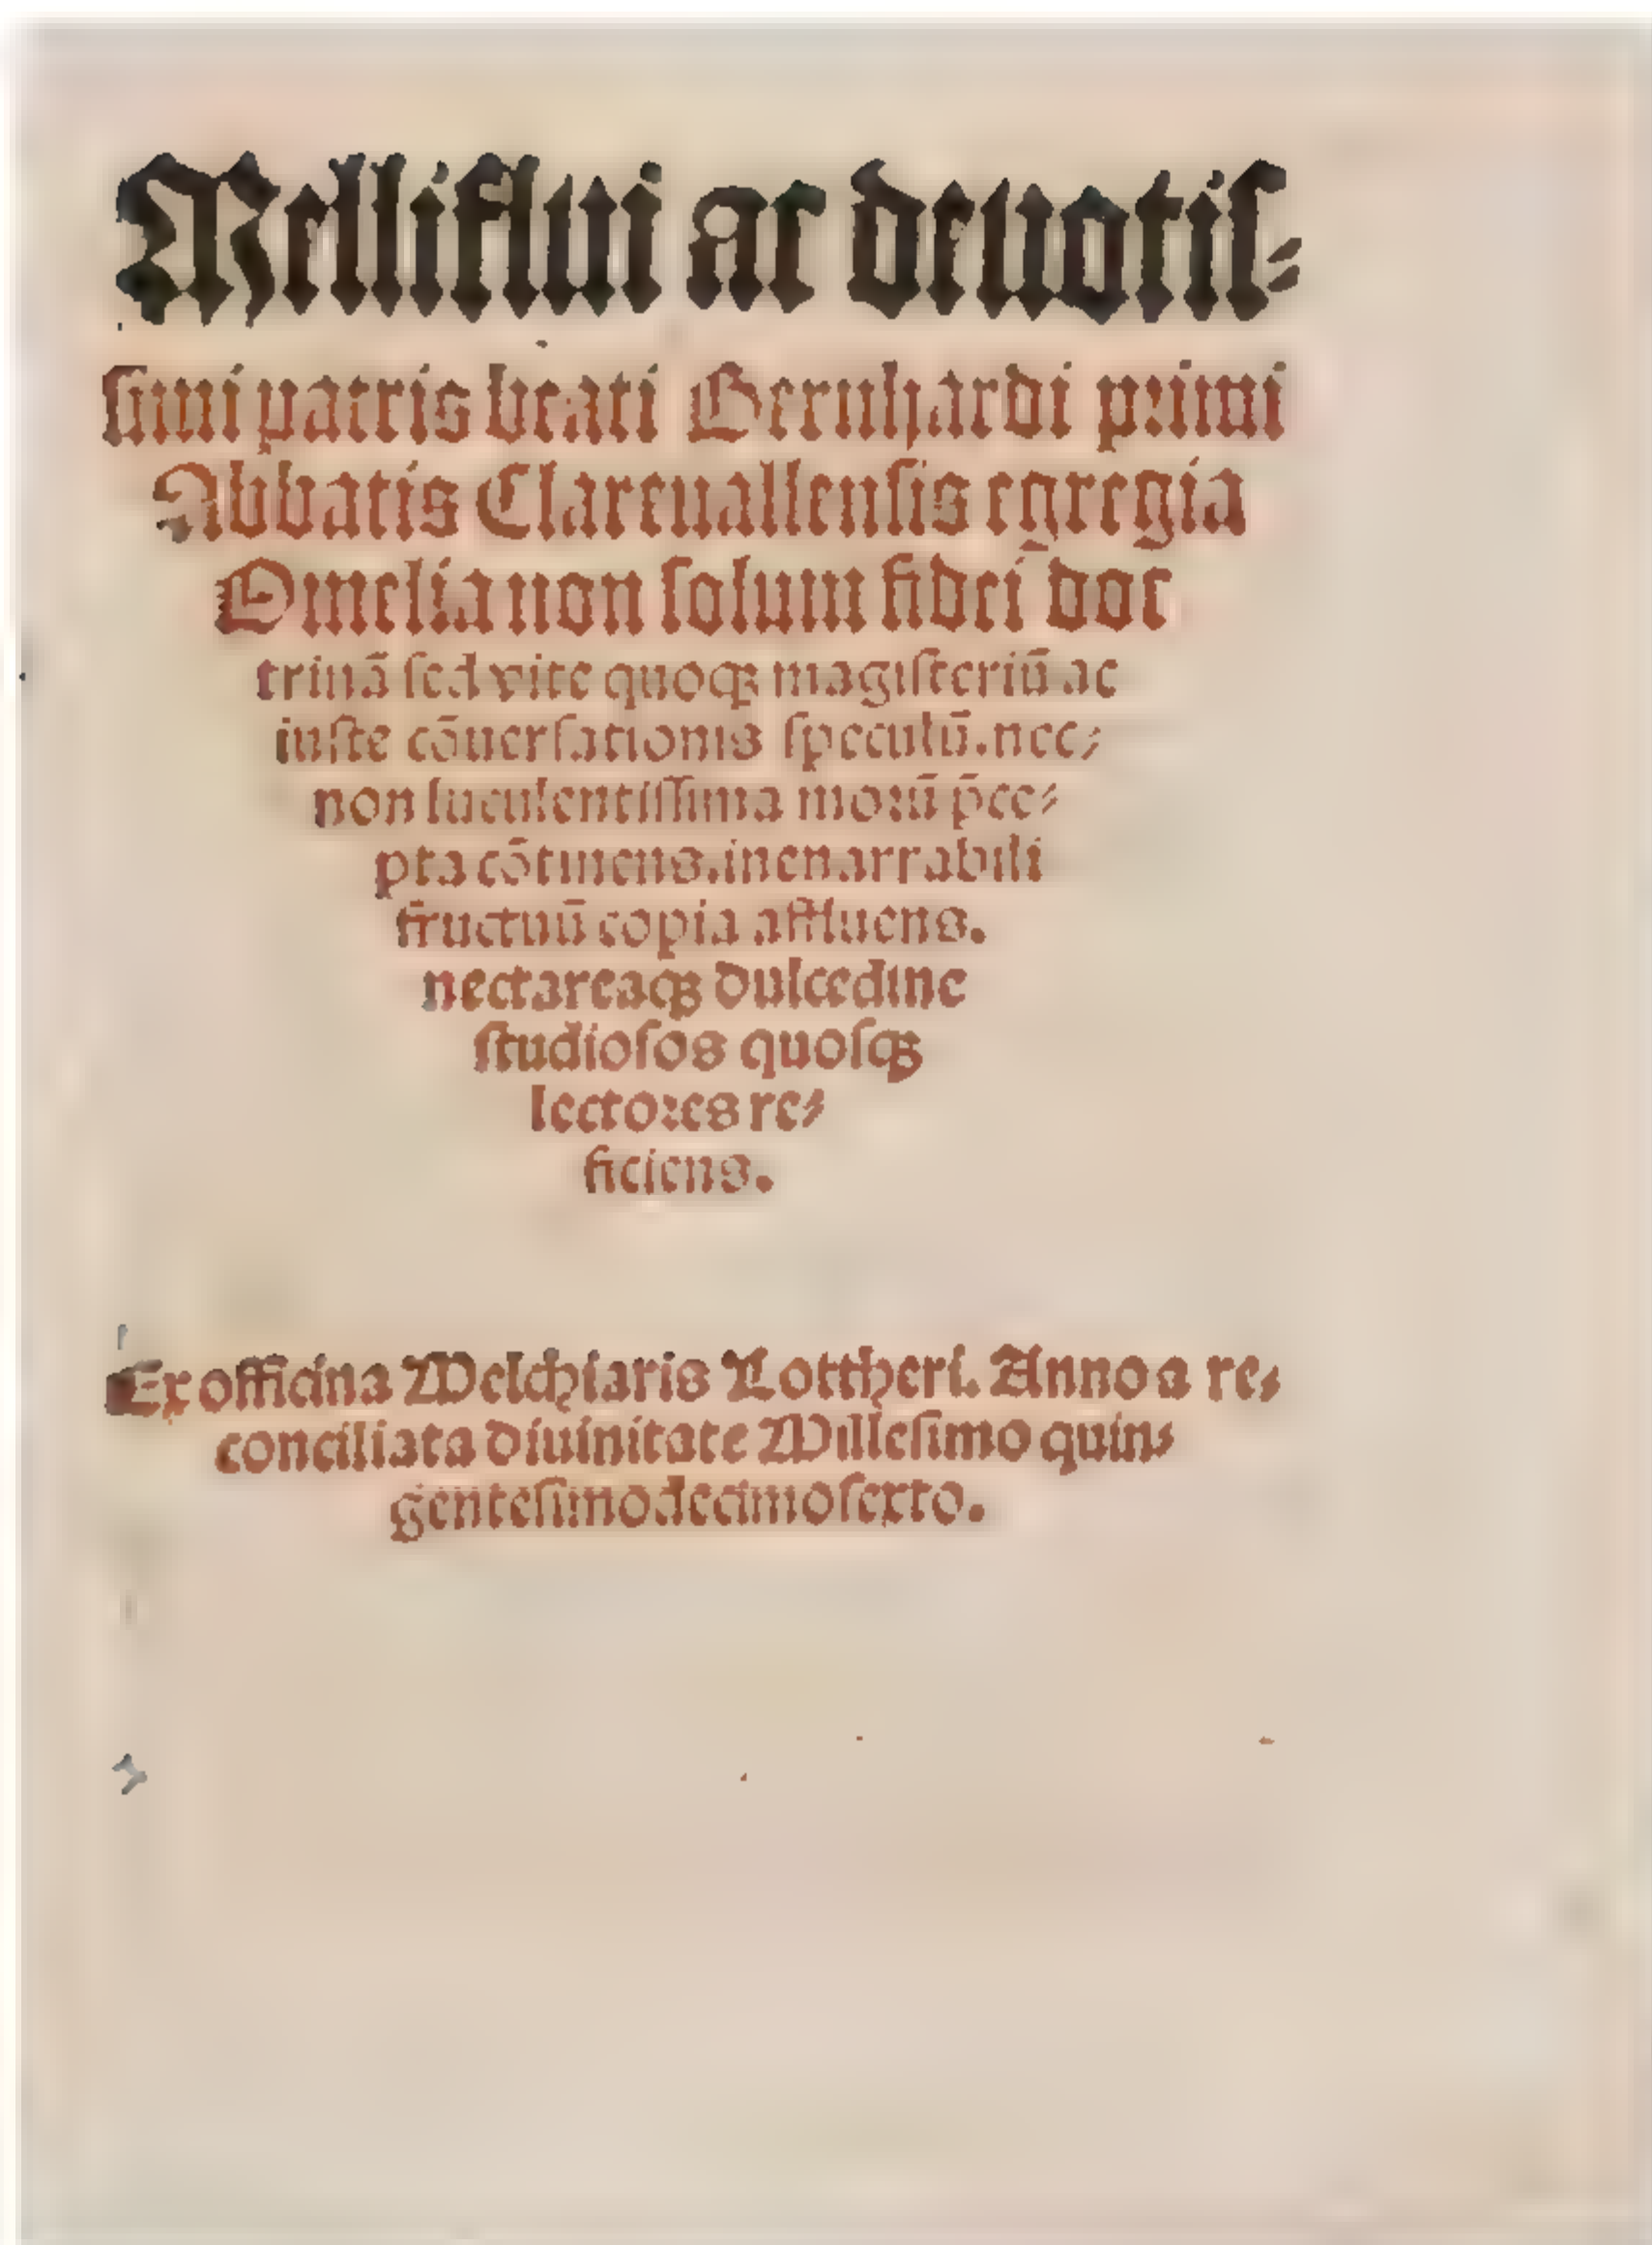 Melliflui ac deuotiſ⸗
ſimi patris beati Bernhardi primi
Abbatis Clareuallenſis egregia
Omelia non ſolum fidei doc
trinā ſed vite quoqꝫ magiſteriū ac
iuſte cōuerſationis ſpeculū. nec⸗
non luculentiſſima morū p̄ce⸗
pta cōtinens. inenarrabili
fructuū copia affluens.
nectareaqꝫ dulcedine
ſtudioſos quoſqꝫ
lectores re⸗
ficiens.
Ex officina Melchiaris Lottheri. Anno a re⸗
conciliata diuinitate Milleſimo quin⸗
genteſimodecimoſexto.